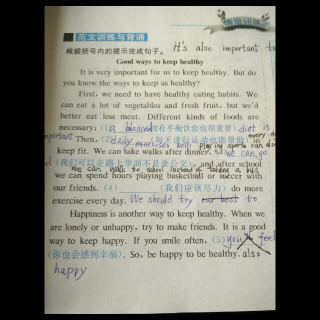 范文训练与背诵
根据括号内的提示完成句子。 It's also important to
Good ways to keep healthy
It is very important for us to keep healthy. But do
you know the ways to keep us healthy?
First, we need to have healthy eating habits. We
can eat a lot of vegetables and fresh fruit, but we'd
better eat less meat. Different kinds of foods are
necessary. (1) a balanced (拥有平衡饮食也很重要) diet is
important Then, (2) daily exercises help playing sports can also every day
keep fit. We can take walks after dinner. (3) We can go
(我们可以走路上学而不是坐公交), and after school
We can walk to school instead of taking a bus
we can spend hours playing basketball or soccer with
our friends. (4) (我们应该尽力) do more
exercise every day. We should try our best to
Happiness is another way to keep healthy. When we
are lonely or unhappy, try to make friends. It is a good
way to keep happy. If you smile often, (5) you'll feel
(你也会感到幸福). So, be happy to be healthy. also
happy